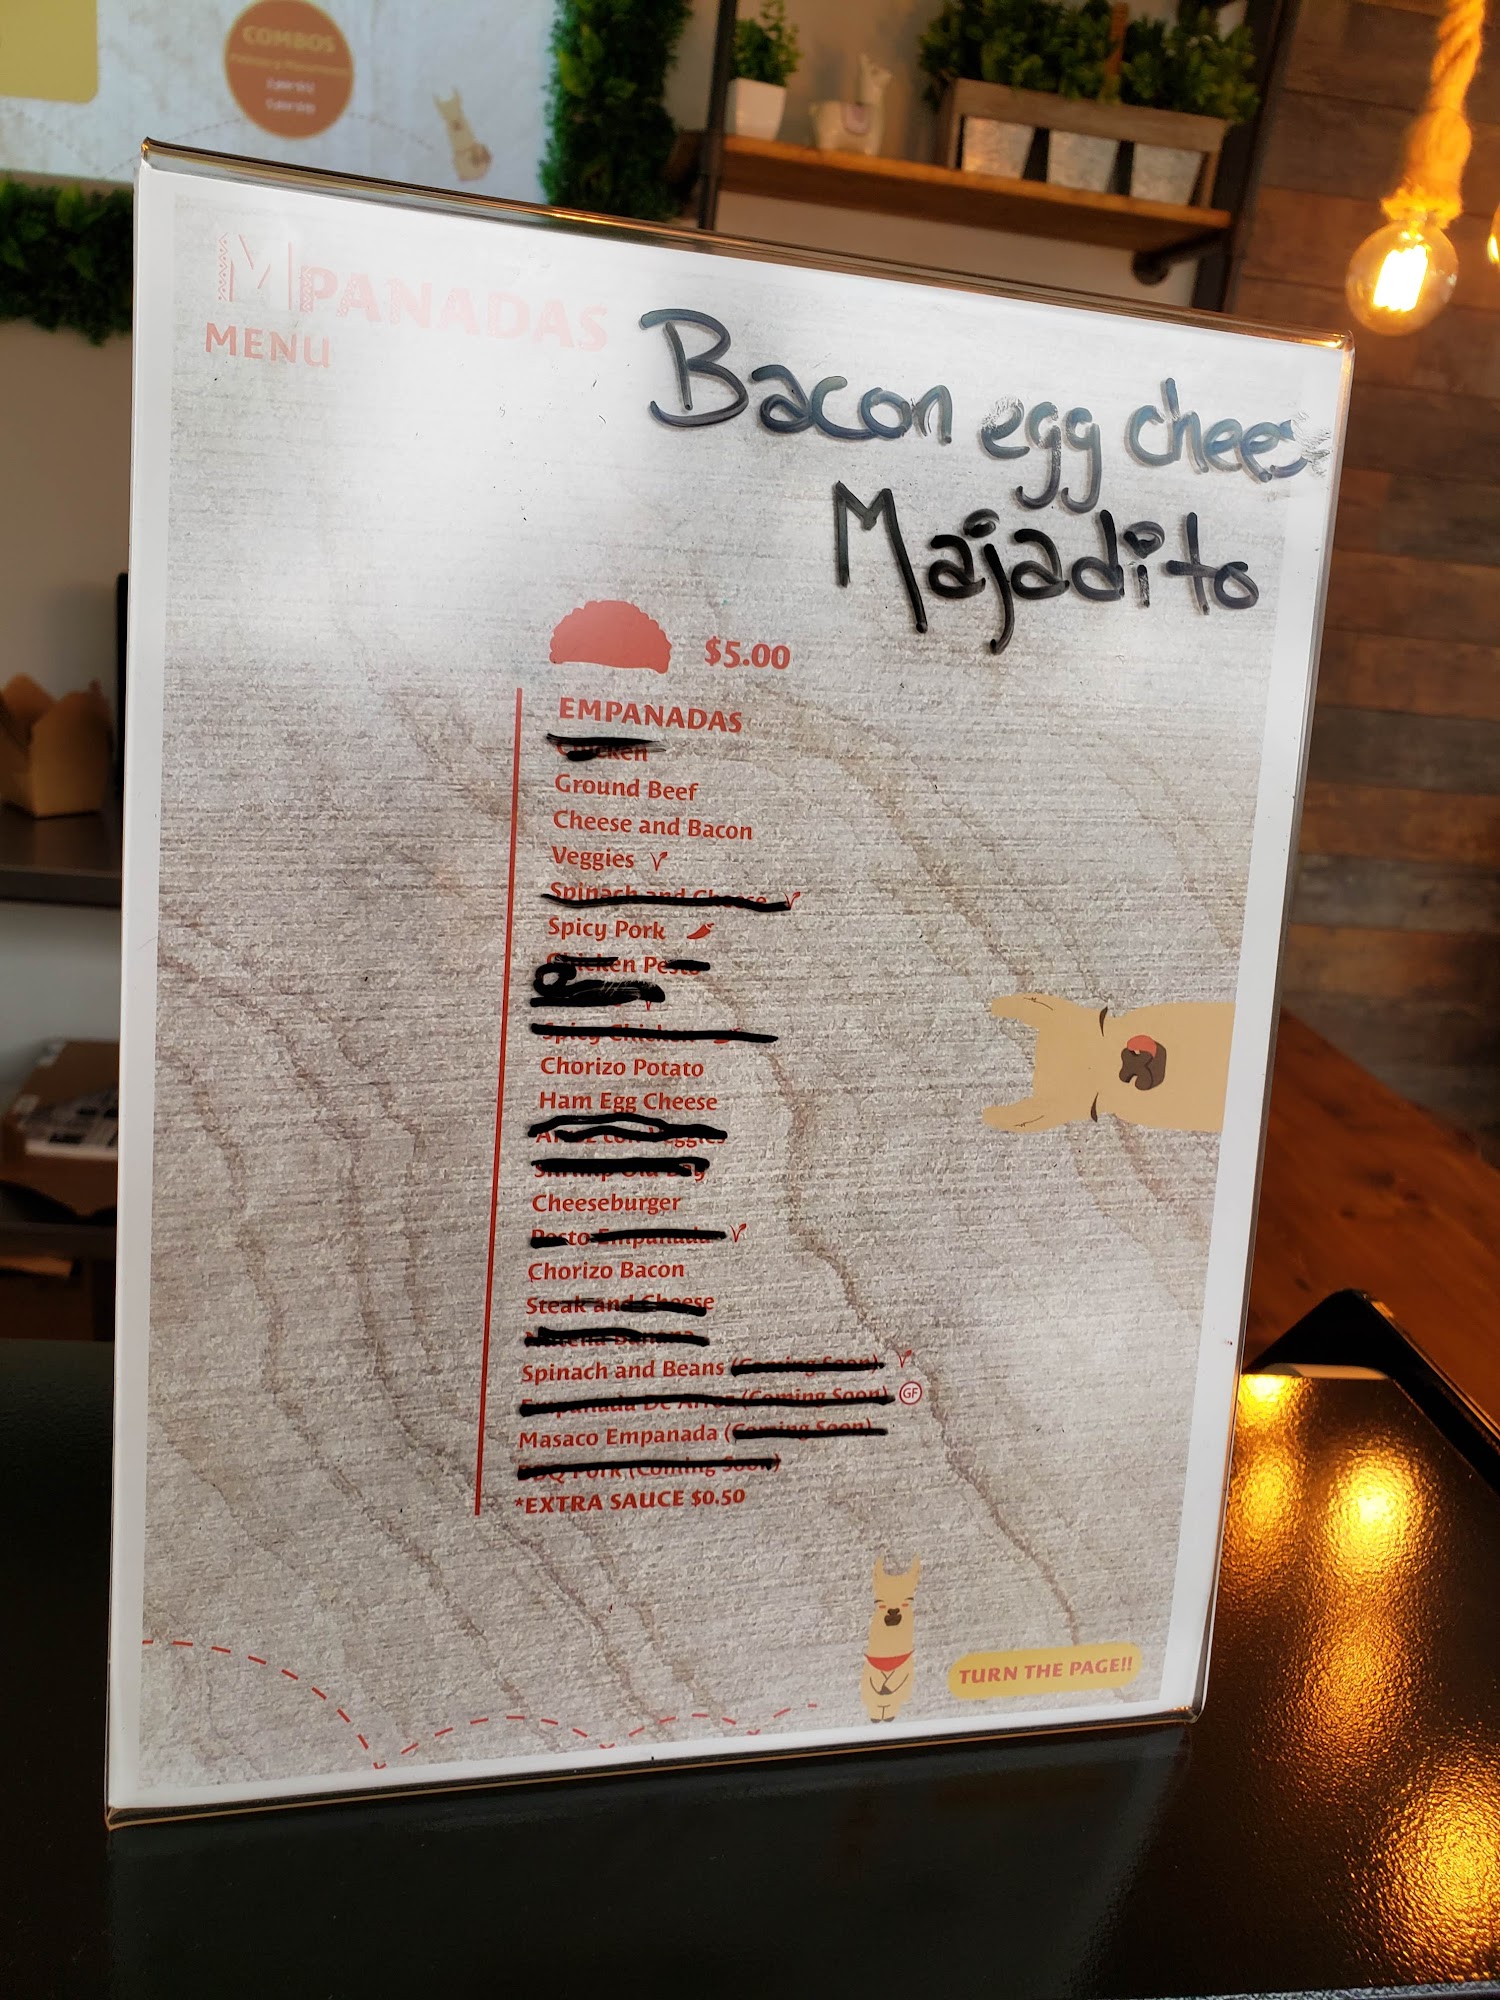 COMBOS
MPANADAS
MENU
Bacon egg chees
Majadito
$5.00
EMPANADAS
Chicken
Ground Beef
Cheese and Bacon
Veggies
Spinach and Cheese
Spicy Pork
Chicken Pesto
Spicy Chicken
Chorizo Potato
Ham Egg Cheese
Arroz con Veggies
Shrimp Old Bay
Cheeseburger
Pesto Empanada
Chorizo Bacon
Steak and Cheese
Nutella Banana
Spinach and Beans (Coming Soon)
Empanada De Arroz (Coming Soon) GF
Masaco Empanada (Coming Soon)
BBQ Pork (Coming Soon)
*EXTRA SAUCE $0.50
TURN THE PAGE!!